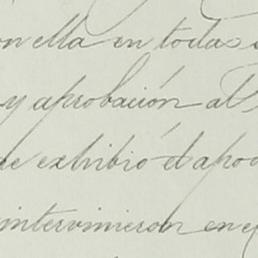 on ella en todas
y aprobación al
ue exhibió el apod
intervinieron en e